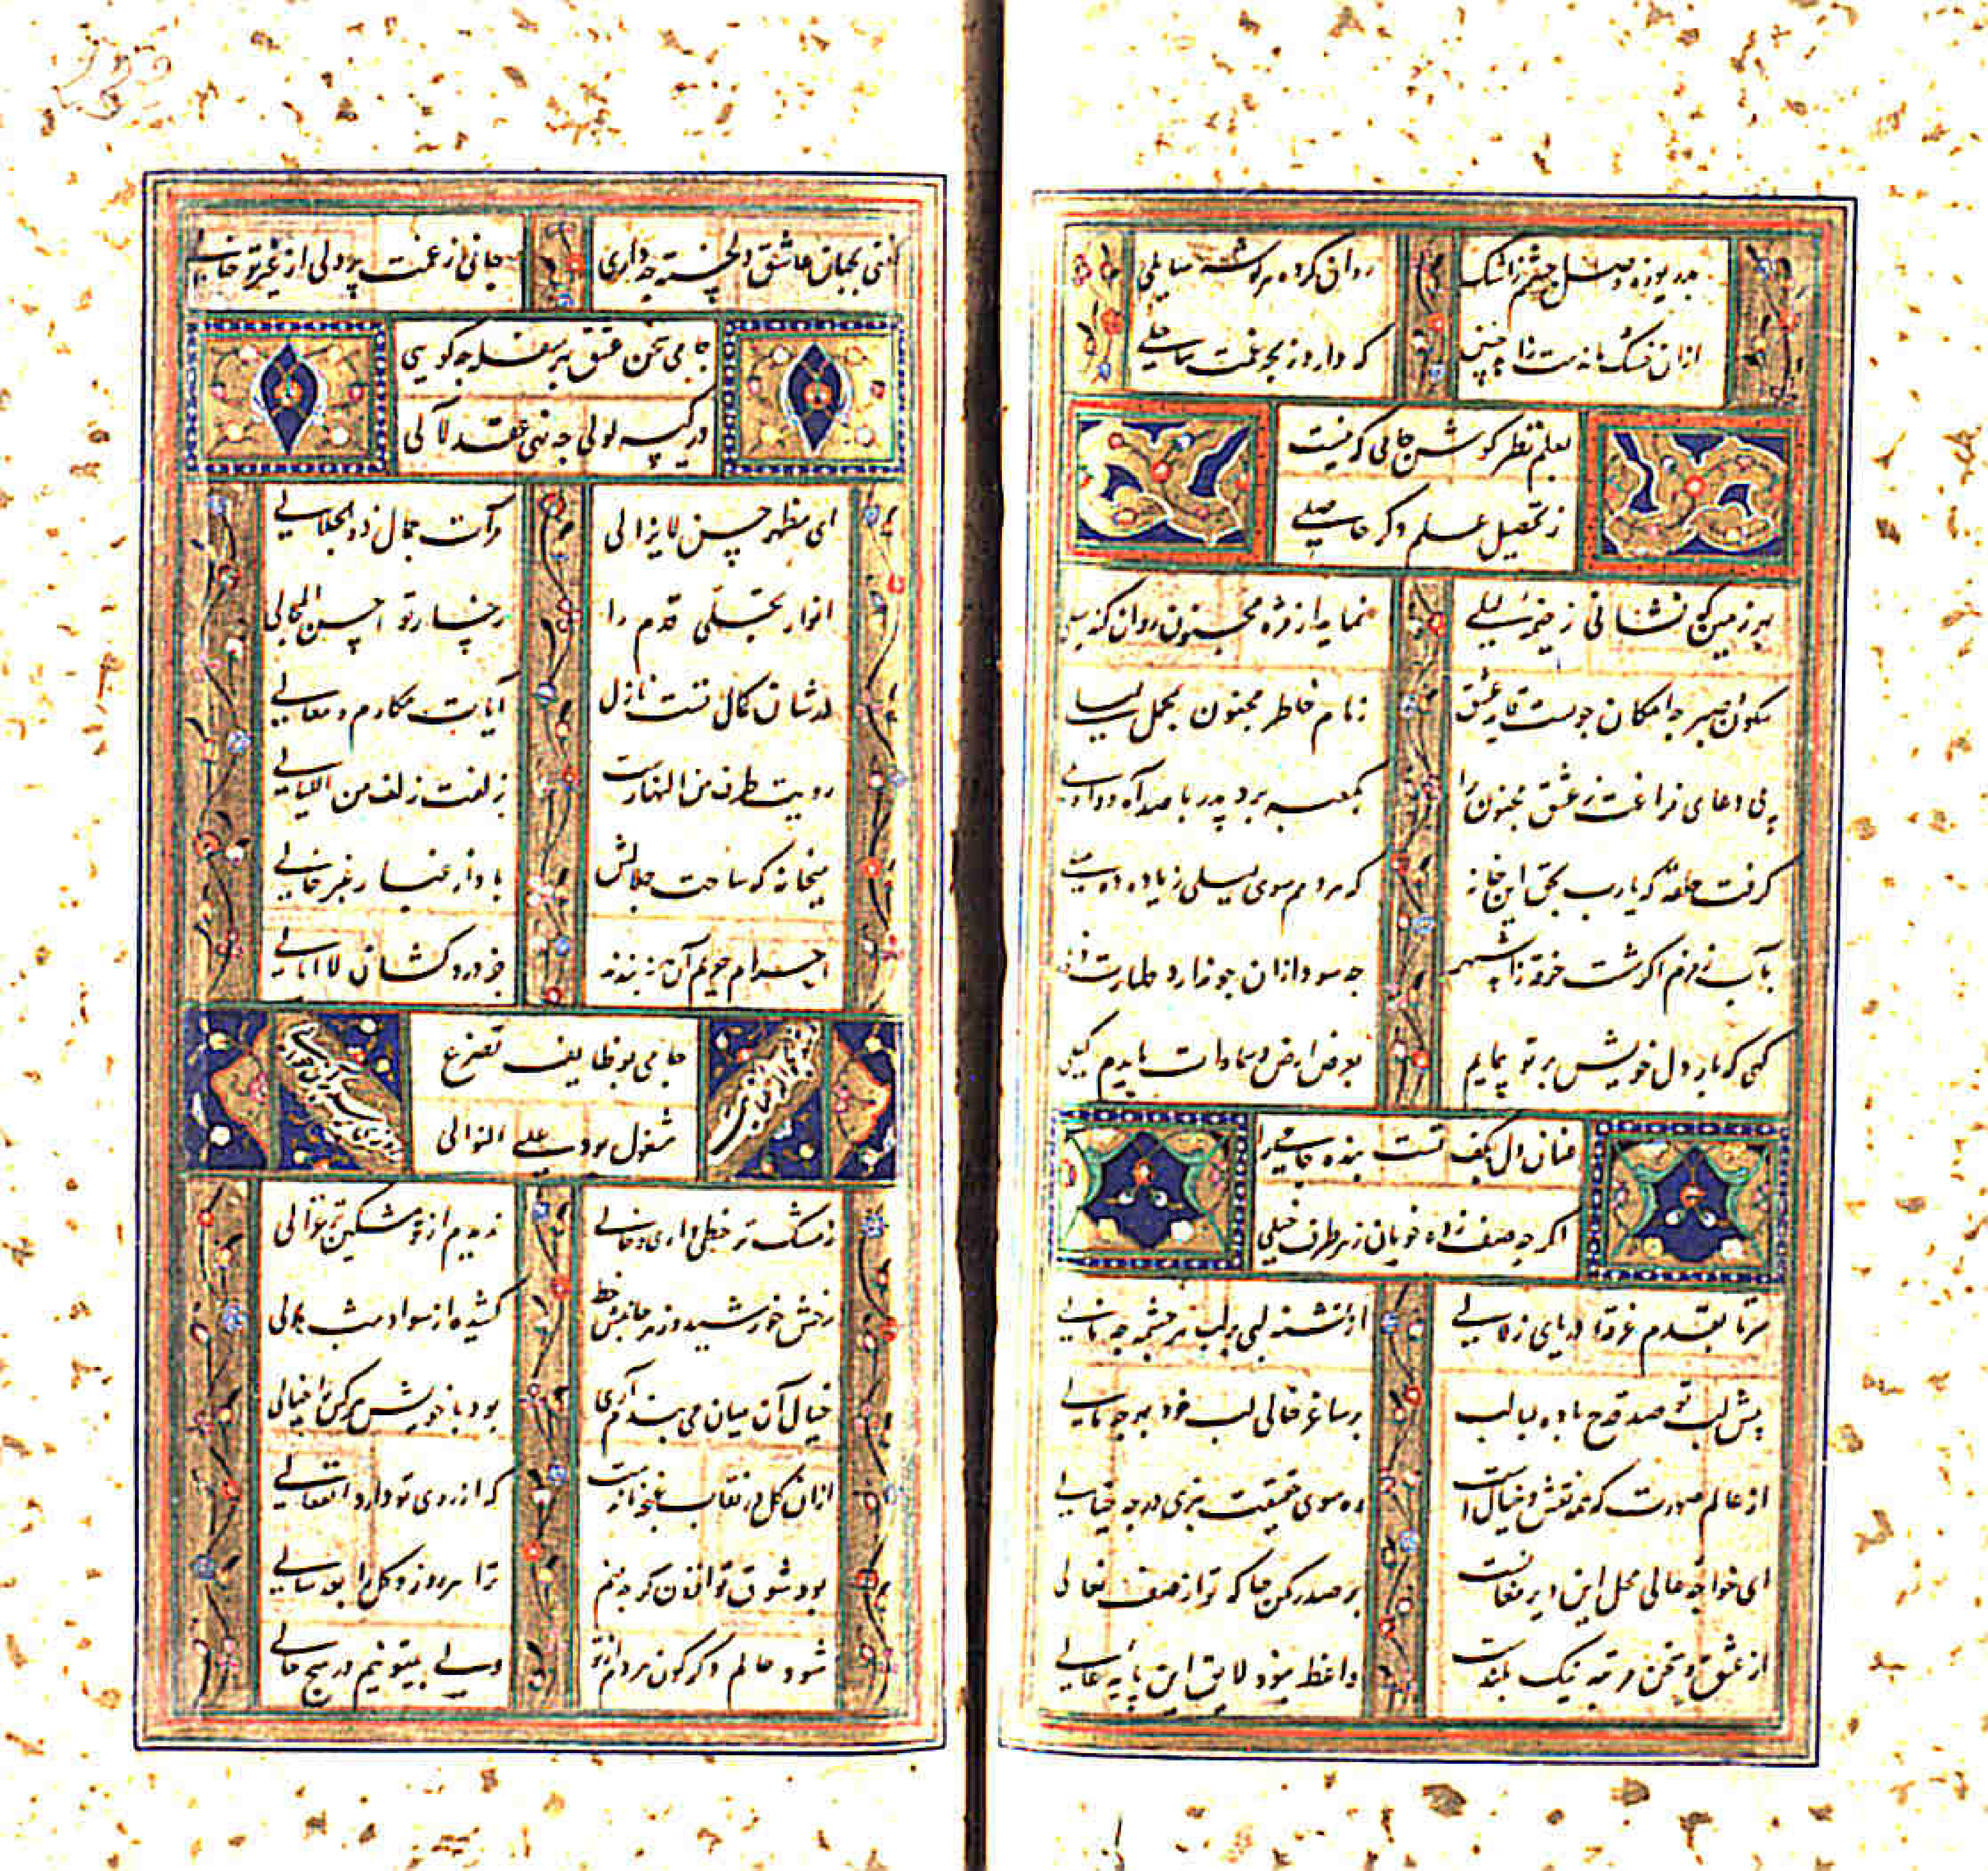 بدریوزه وصل چشم ز اشک
روان کرده هر گوشه سایلی
ازان خشک ماندست زاهد چنین
که دارد ز بحر غمت ساحلی
بعلم نظر کوش جامی که نیست
ز تحصیل علم دگر حاصلی
بهر زمین که نشانی ز خیمه لیلی
نماید از مژه مجنون روان کند سیلی
سکون و صبر چه امکان چو هست قاید عشق
زمام خاطر مجنون بمحمل لیلی
پی دعای فراغت ز عشق مجنون را
بکعبه برد پدر با صد آه و واویلی
گرفت حلقه که یارب بحق این خانه
که هر دمم سوی لیلی زیاده ده میلی
بآب زمزم اگر شست خرقه زاهد شهر
چه سود ازان چو ندارد طهارت ذیلی
کهی که بار دل خویش بر تو پیمایم
بود ارض و سماوات بایدم کیلی
عنان دل بکف تست بنده جامی را
اگر چه صف زده خوبان ز هر طرف خیلی
سر تا بقدم غرقه دریای زلالی
از تشنه لبی بر لب هر چشمه چه نالی
پیش لب تو صد قدح باده لبالب
بر ساغر خالی لب خود بهر چه مالی
از عالم صورت که همه نقش و خیال است
ره سوی حقیقت نبری در چه خیالی
ای خواجه عالی محل این دیر مغانست
بر صدر مکن جا که تو از صف نعالی
از عشق و سخن مرتبه نیک بلندست
واعظ نبود لایق این پایه عالی
غنی بجهان عاشق دلخسته چه داری
جانی ز غمت پر دلی از غیر تو خالی
جامی سخن عشق بهر سفله چه گویی
در کیسه لولی چه نهی عقد لآلی
ای مظهر حسن لایزالی
مرآت جمال ذوالجلالی
انوار تجلی قدم را
رخسار تو احسن المجالی
در شان کمال تست نازل
آیات مکارم و معالی
رویت طرف من النهارست
زلفت زلف من اللیالی
میخانه که ساحت جلالش
بادا ز غبار غیر خالی
احرام حریم آن نبندند
جز دردکشان لاابالی
جامی بوظایف تضرع
مشغول بود علی التوالی
ز مشک تر خطی داری و خالی
ندیدم از تو مشکین تر غزالی
رخش خورشید و زیر جانبش خط
کشیده از سواد شب هلالی
خیال آن میان می بندم آری
بود با خویش هر کس را خیالی
ازان گل در نقاب غنچه ماندست
که از روی تو دارد انفعالی
بود شوق تو افزون گر چه بینم
ترا هر روز و گل را بعد سالی
شود عالم دگرگون هر دم از تو
ولی بیتو نیم در هیچ حالی